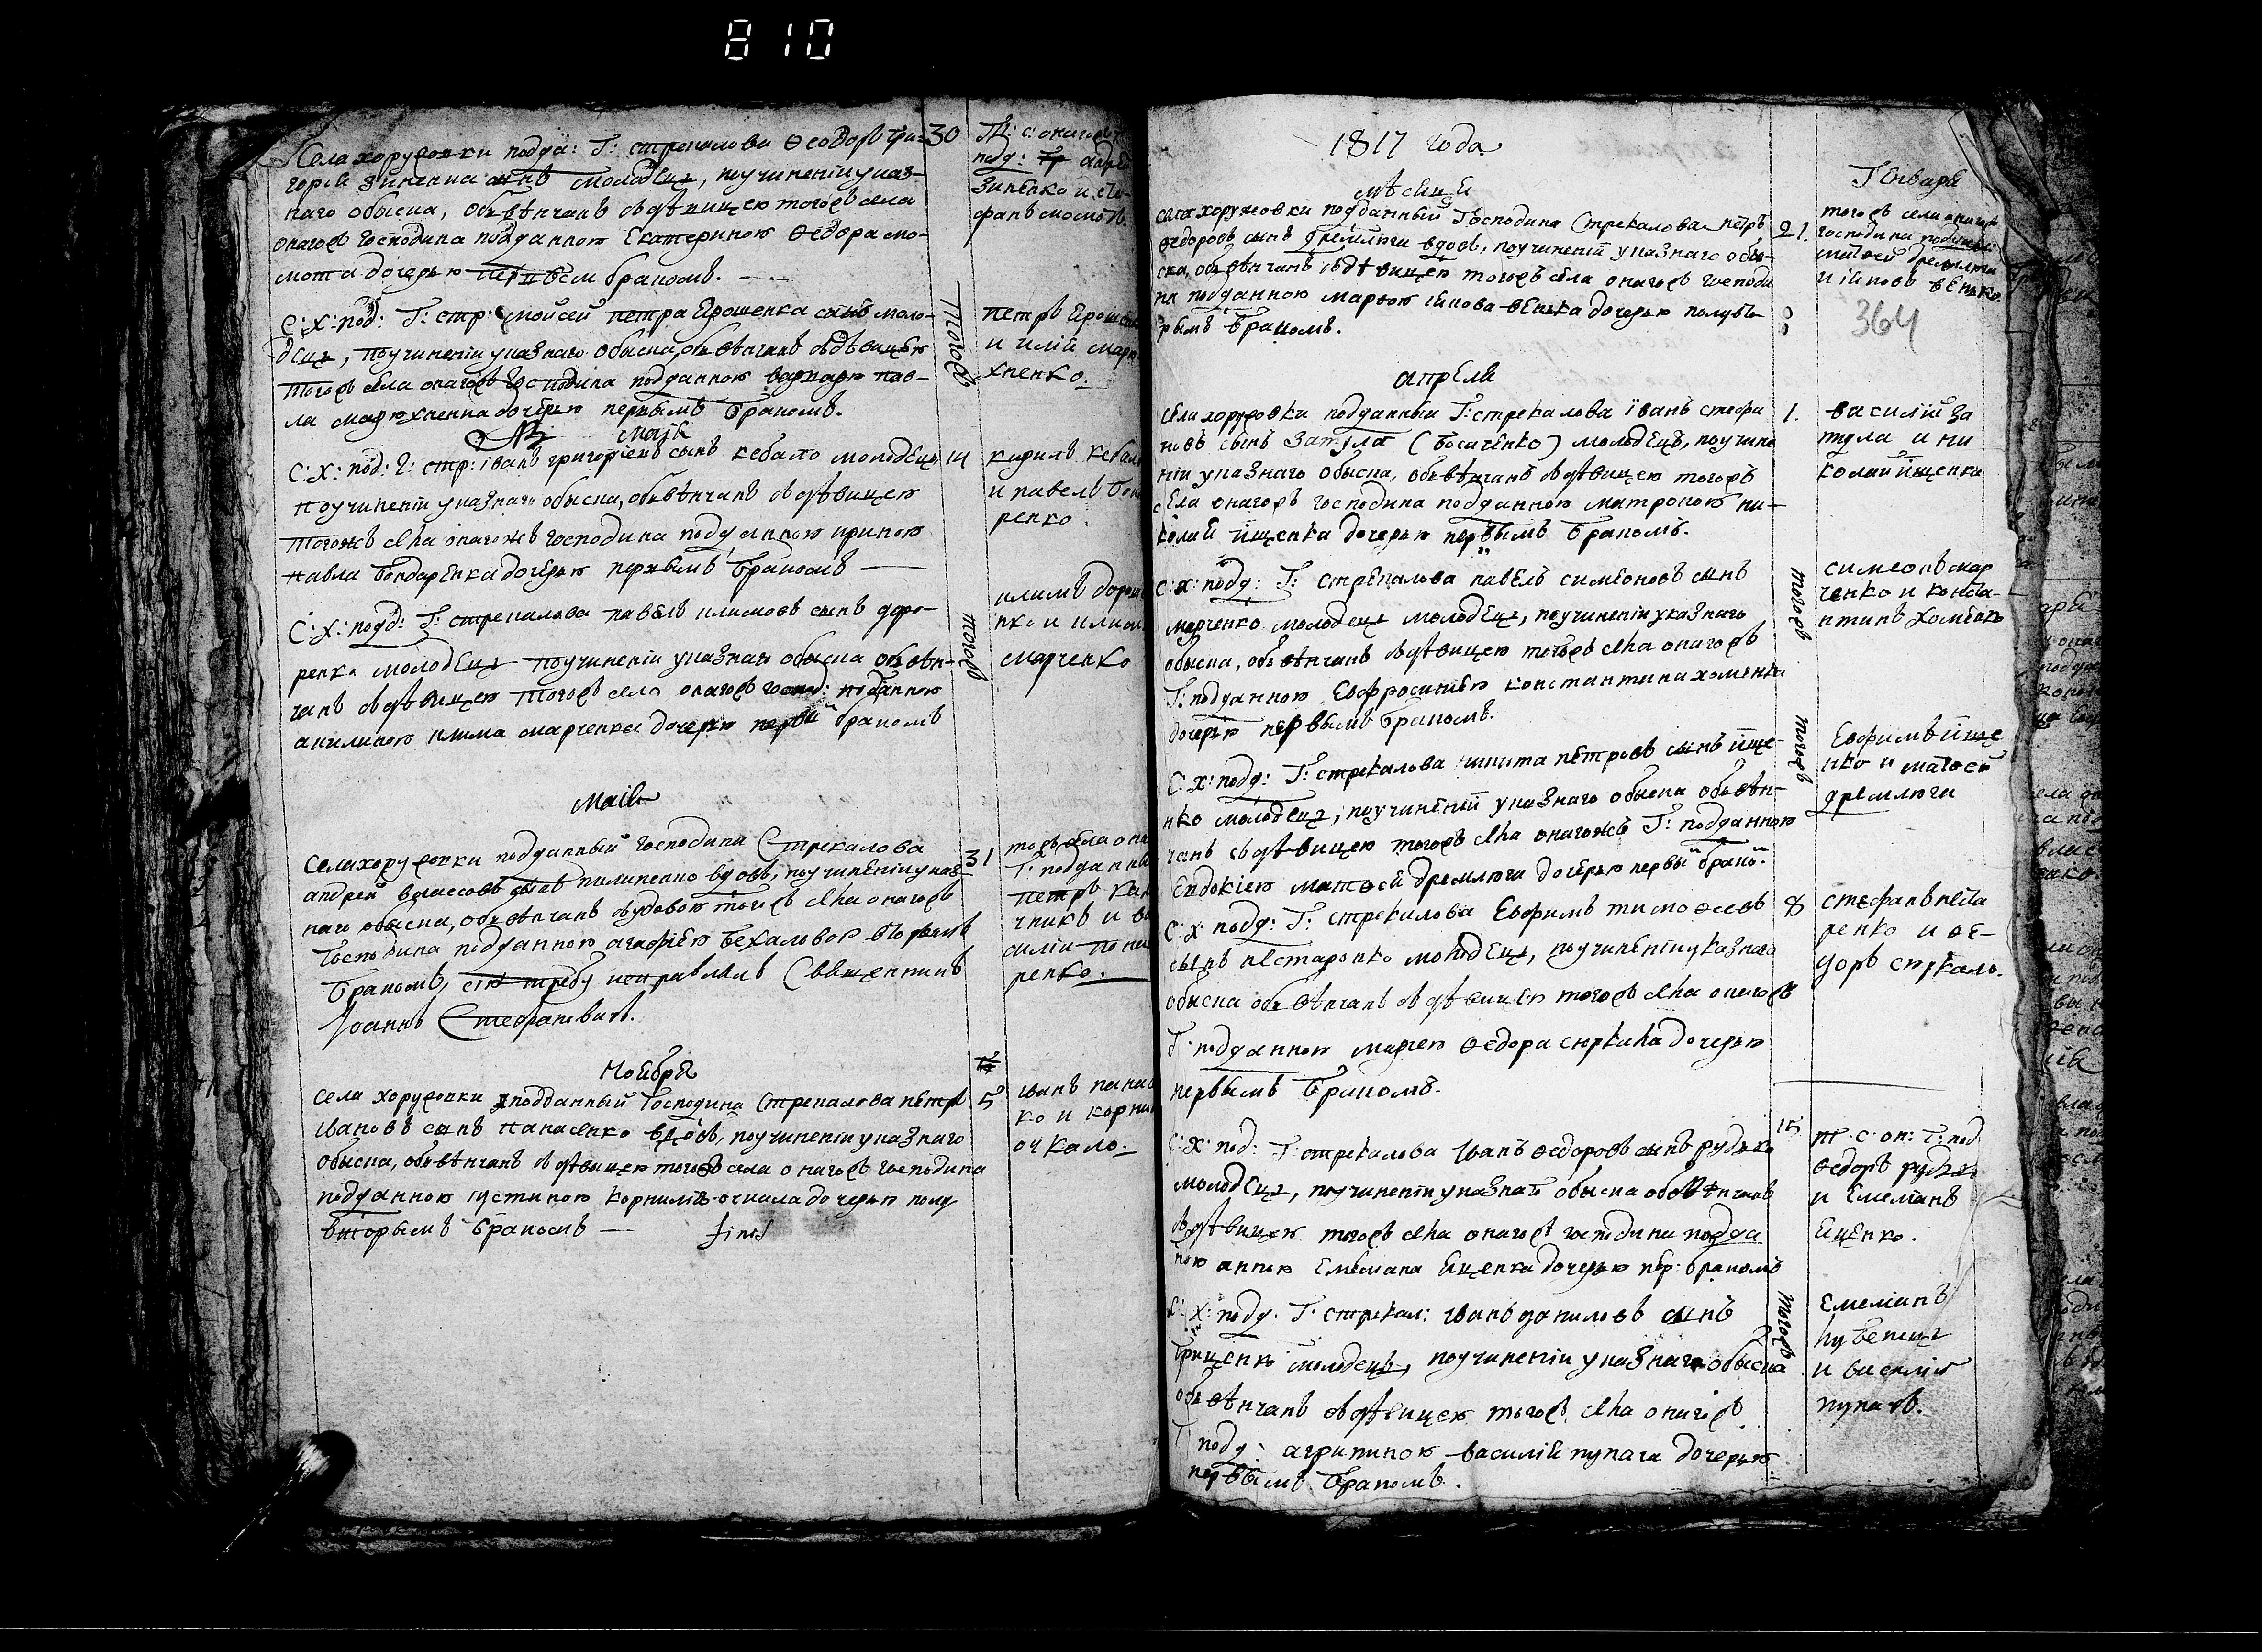 810
Села хоружовки подда: Г: стрекалова Ѳеодоръ гри=
горїя зинченка сынъ молодецъ, поучиненїи указ-
наго обыска, обвѣнчанъ здѣвицею тогожъ села
оногожъ господина подданною Екатериною Ѳедора мо-
мота дочерью первымъ бракомъ.
30
Т: с: оногожъ
подд:
зинченко и сте
фанъ момотъ.
С: Х: под: Г: стр: Мойсей петра Ерошенка сынъ моло-
децъ, поучиненїи указнаго обыска, обвѣнчанъ здѣвицею
тогожъ села оногожъ господина подданною варварою пав-
ла марюхненка дочерью первымъ бракомъ.
тогожъ
петръ Ерошен
и илїя марю
хненко.
маїя
С: Х: под: Г: стр: іванъ григорїевъ сынъ кебало молодецъ
поучиненїи указнаго обыска, обвѣнчанъ здѣвицею
тогожъ села оногожъ господина подданною ириною
павла бондаренка дочерью первымъ бракомъ —
14
кирилъ кебал
и павелъ бон
ренко.
С: Х: подд: Г: стрекалова павелъ климовъ сынъ доро-
ренко молодецъ поучиненїи указнаго обыска обвѣн-
чанъ здѣвицею тогожъ села оногожъ господ: подданною
акилиною клима марченка дочерью первый бракомъ
тогожъ
климъ дорош
нко и клим
марченко
Маїя
Села хоружовки подданный господина Стрекалова
андрей власовъ сынъ пилипенко вдовъ, поучиненїи указ-
наго обыска, обвѣнчанъ звдовою тогожъ села оногожъ
господина подданною агафїею бехаловою вторымъ
бракомъ, сїю требу исправлялъ Священникъ
Іоаннъ Стефановичъ.
31
тогожъ села оно
Г: подданные
петръ кал
чникъ и ва
силїй поно
ренко.
Ноября
Села хоружовки подданный Господина Стрекалова петръ
Ивановъ сынъ панасенко вдовъ, поучиненїи указнаго
обыска, обвѣнчанъ здѣвицею тогожъ села оногожъ господина
подданною іустиною корнилїя очкала дочерью полу
вторымъ бракомъ — finis
5
иванъ панас
ко и корни
очкало.
1817 года
мѣсяця
Генваря
Села хоружовки подданный Господина Стрекалова петръ
Ѳедоровъ сынъ дремлюги вдовъ, поучиненїи указнаго обы-
ска, обвѣнчанъ здѣвицею тогожъ села оногожъ господи
на подданною марьею іѡнова венка дочерью полувто
рымъ бракомъ.
21.
тогожъ села оногожъ
господина подданные
матвей дремлюга
и іѡновъ венко.
364
апреля
Села хоружовки подданный Г: стрекалова іванъ стефа
новъ сынъ затула (косаченко) молодецъ, поучине
нїи указнаго обыска, обвѣнчанъ здѣвицею тогожъ
села оногожъ господина подданною матроною ни-
колая йщенка дочерью первымъ бракомъ.
1.
василїй за
тула и ни
колай йщенка
С: Х: подд: Г: стрекалова павелъ симеоновъ сынъ
марченко молодецъ молодецъ, поучиненїи указнаго
обыска, обвѣнчанъ здѣвицею тогожъ села оногожъ
Г: подданною Евфросинїею константина хоменка
дочерью первымъ бракомъ.
тогожъ
симеонъ мар
ченко и конста-
нтинъ хоменко
С: Х: подд: Г: стрекалова никита петровъ сынъ йще-
нко молодецъ, поучиненїи указнаго обыска обвѣн-
чанъ здѣвицею тогожъ села оногожъ Г: подданною
Евдокїею матвея дремлюги дочерью первый брако.
тогожъ
Евфимъ йще
нко и матвей
дремлюги
С: Х: подд: Г: стрекалова Евфимъ тимоѳеевъ
сынъ нестаренко молодецъ, поучиненїи указнаго
обыска обвѣнчанъ здѣвицею тогожъ села оногожъ
Г: подданною марїею Ѳедора сюркала дочерью
первымъ бракомъ.
8
стефанъ неста
ренко и Ѳе-
доръ сюркало.
С: Х: под: Г: стрекалова Иванъ Ѳедоровъ сынъ рудько
молодецъ, поучиненїи указнаго обыска обвѣнчанъ
здѣвицею тогожъ села оногожъ господина подда
ною анною Емелїана Ященка дочерью пер: бракомъ
15
т: с: он: Г: под
Ѳедоръ рудько
и Емелїанъ
Ященко.
С: Х: подд: Г: стрекал: Иванъ даниловъ сынъ
гриценко молодецъ, поучиненїи указнаго обыска
обвѣнчанъ здѣвицею тогожъ села оногожъ
Г подд: агрипиною василїя пугача дочерью
первымъ бракомъ.
тогожъ
Емелїанъ
и василїй
пугачъ.